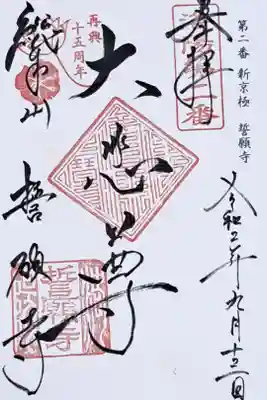 第二番 新京極 誓願寺
奉拝
令和二年九月十三日
大悲殿
再興
十五周年
深草山
誓願寺
誓願寺